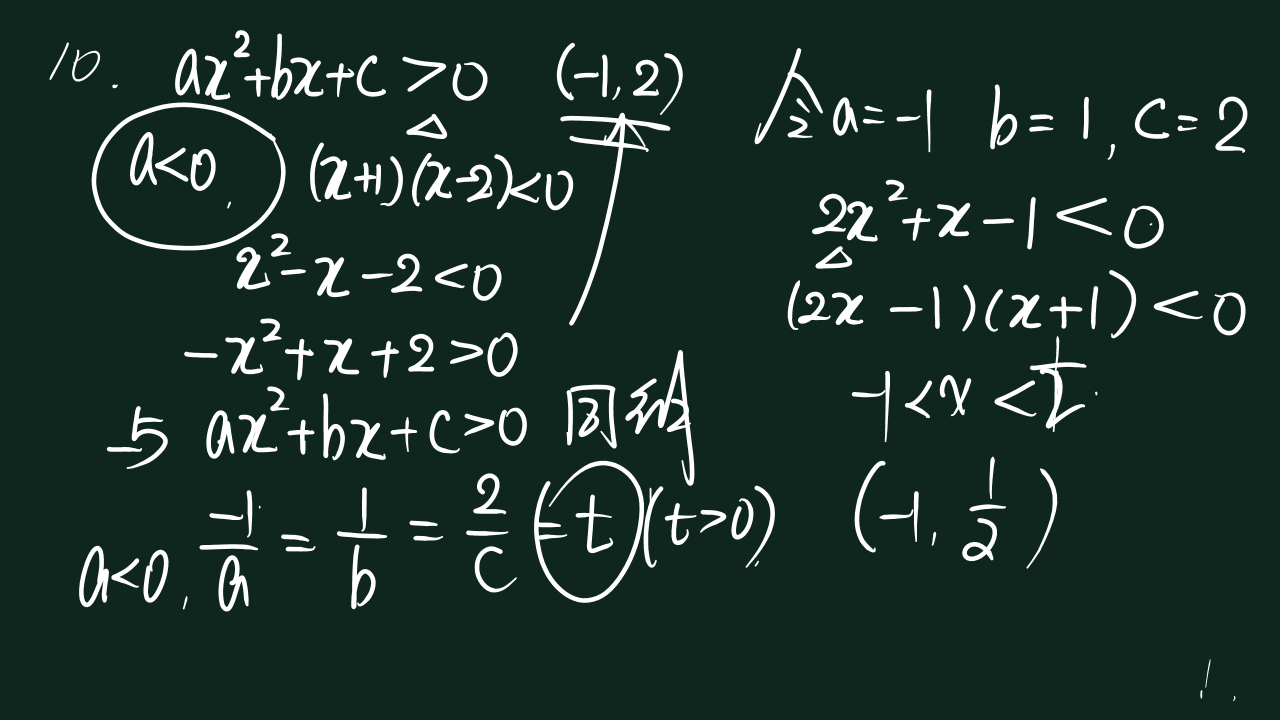 10. ax²+bx+c>0 (-1,2)
a<0, (x+1)(x-2)<0
x²-x-2<0
-x²+x+2>0
与 ax²+bx+c>0 同解
a<0, -1/a = 1/b = 2/c = t (t>0)
a=-1 b=1, c=2
2x²+x-1<0
(2x-1)(x+1)<0
-1<x<1/2.
(-1, 1/2)